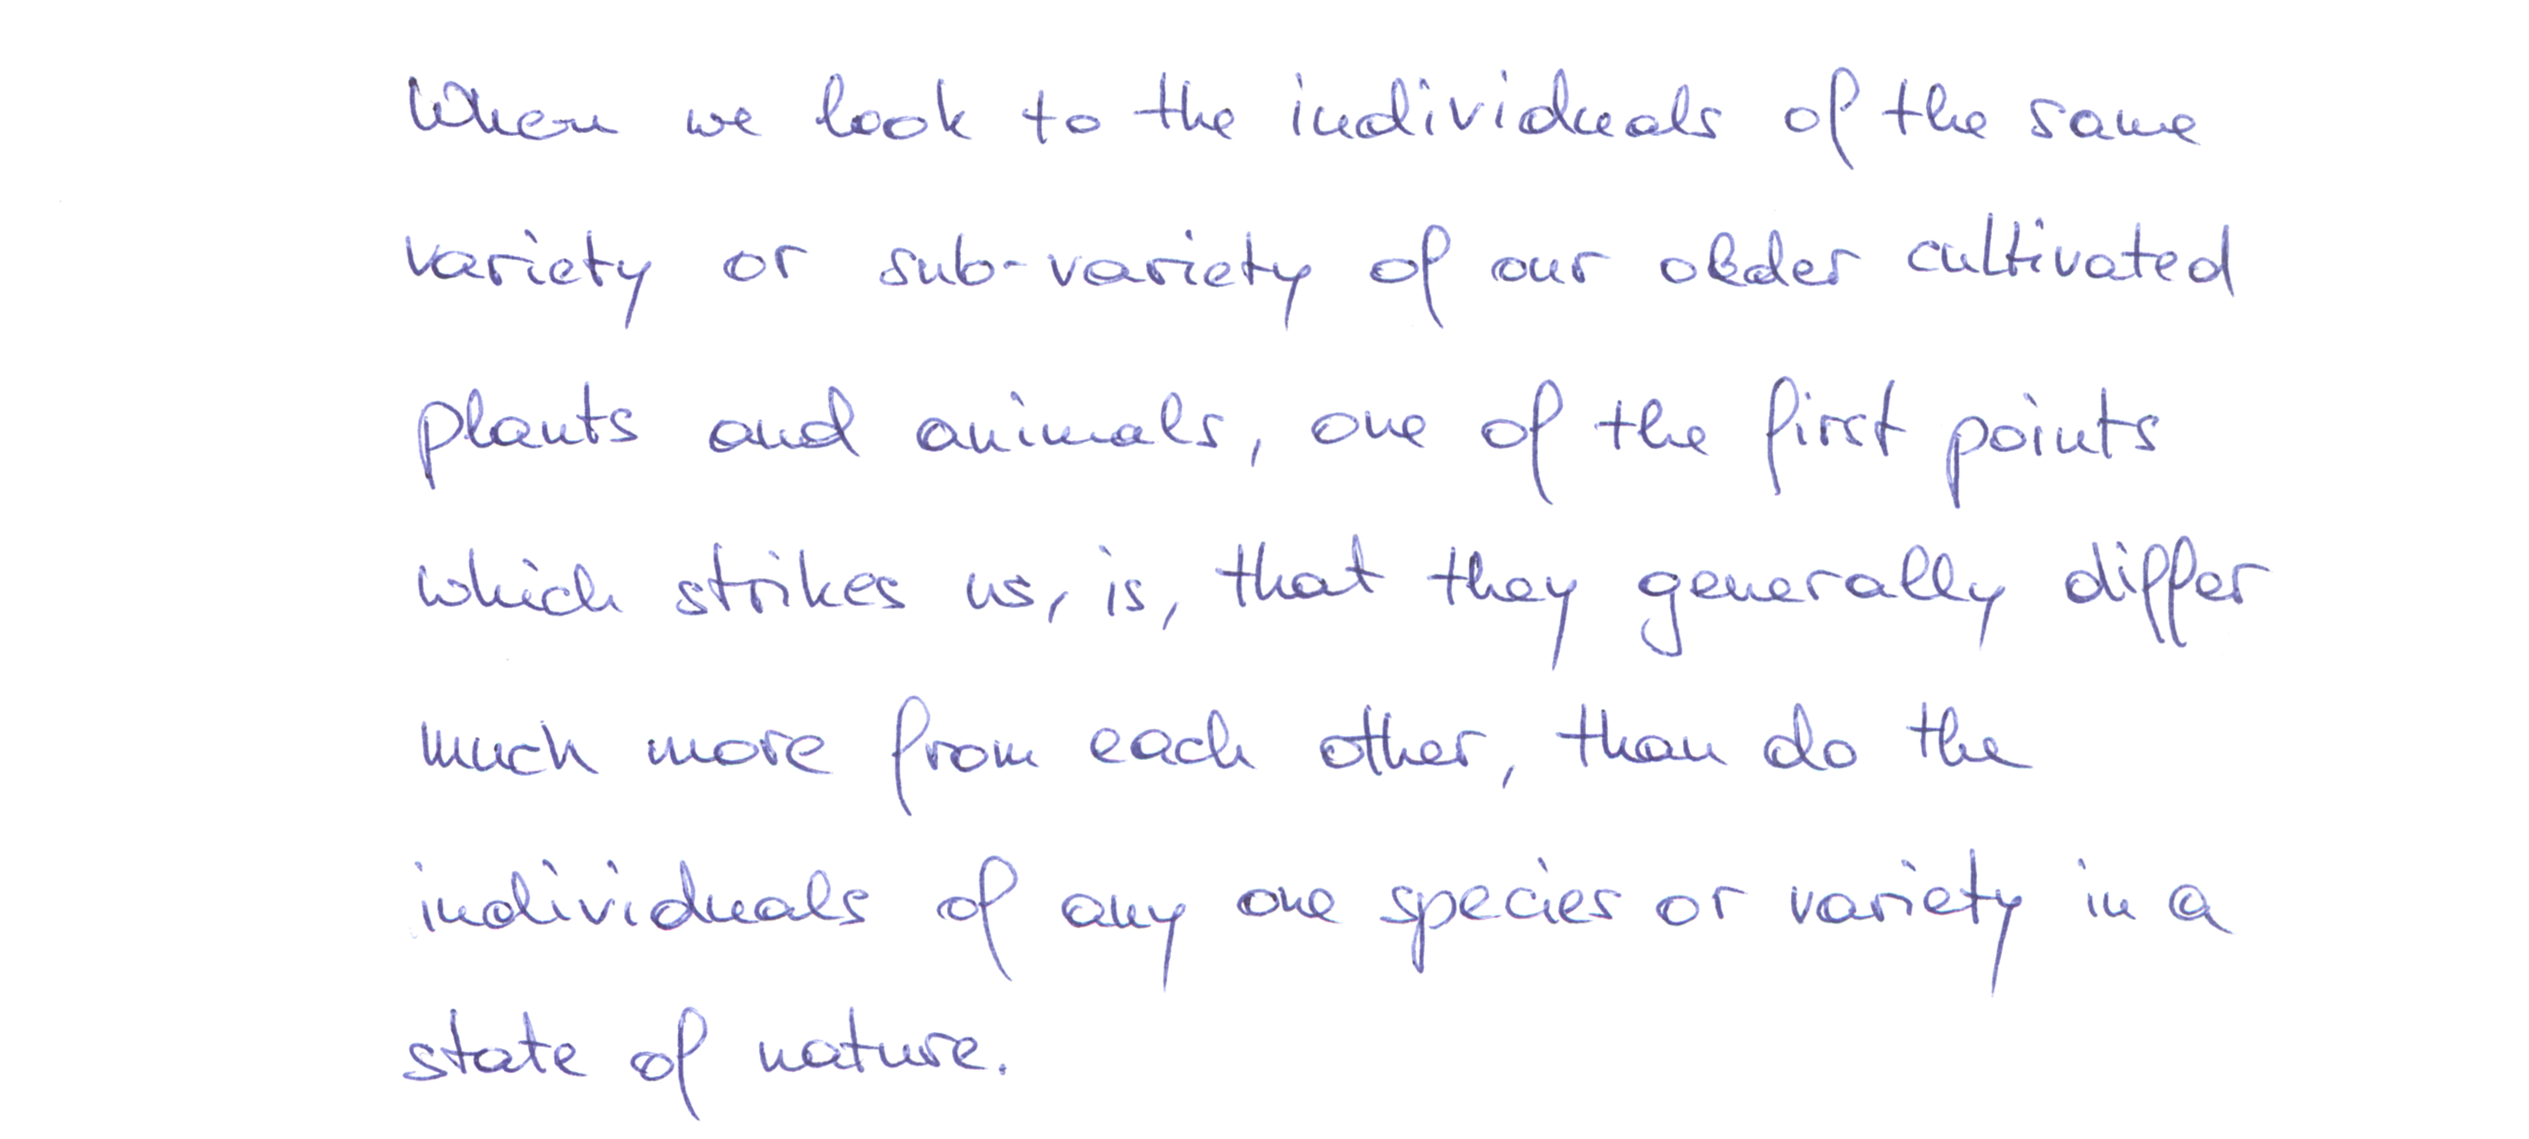 When we look to the individuals of the same
variety or sub-variety of our older cultivated
plants and animals, one of the first points
which strikes us, is, that they generally differ
much more from each other, than do the
individuals of any one species or variety in a
state of nature.